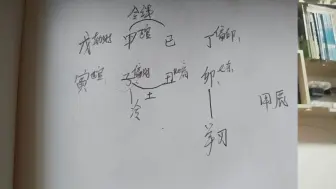 合绊
戊 劫财 甲 正官 己 丁 偏印
寅 正官 子 偏财 丑 卯 七杀
土
冷 甲辰
学习